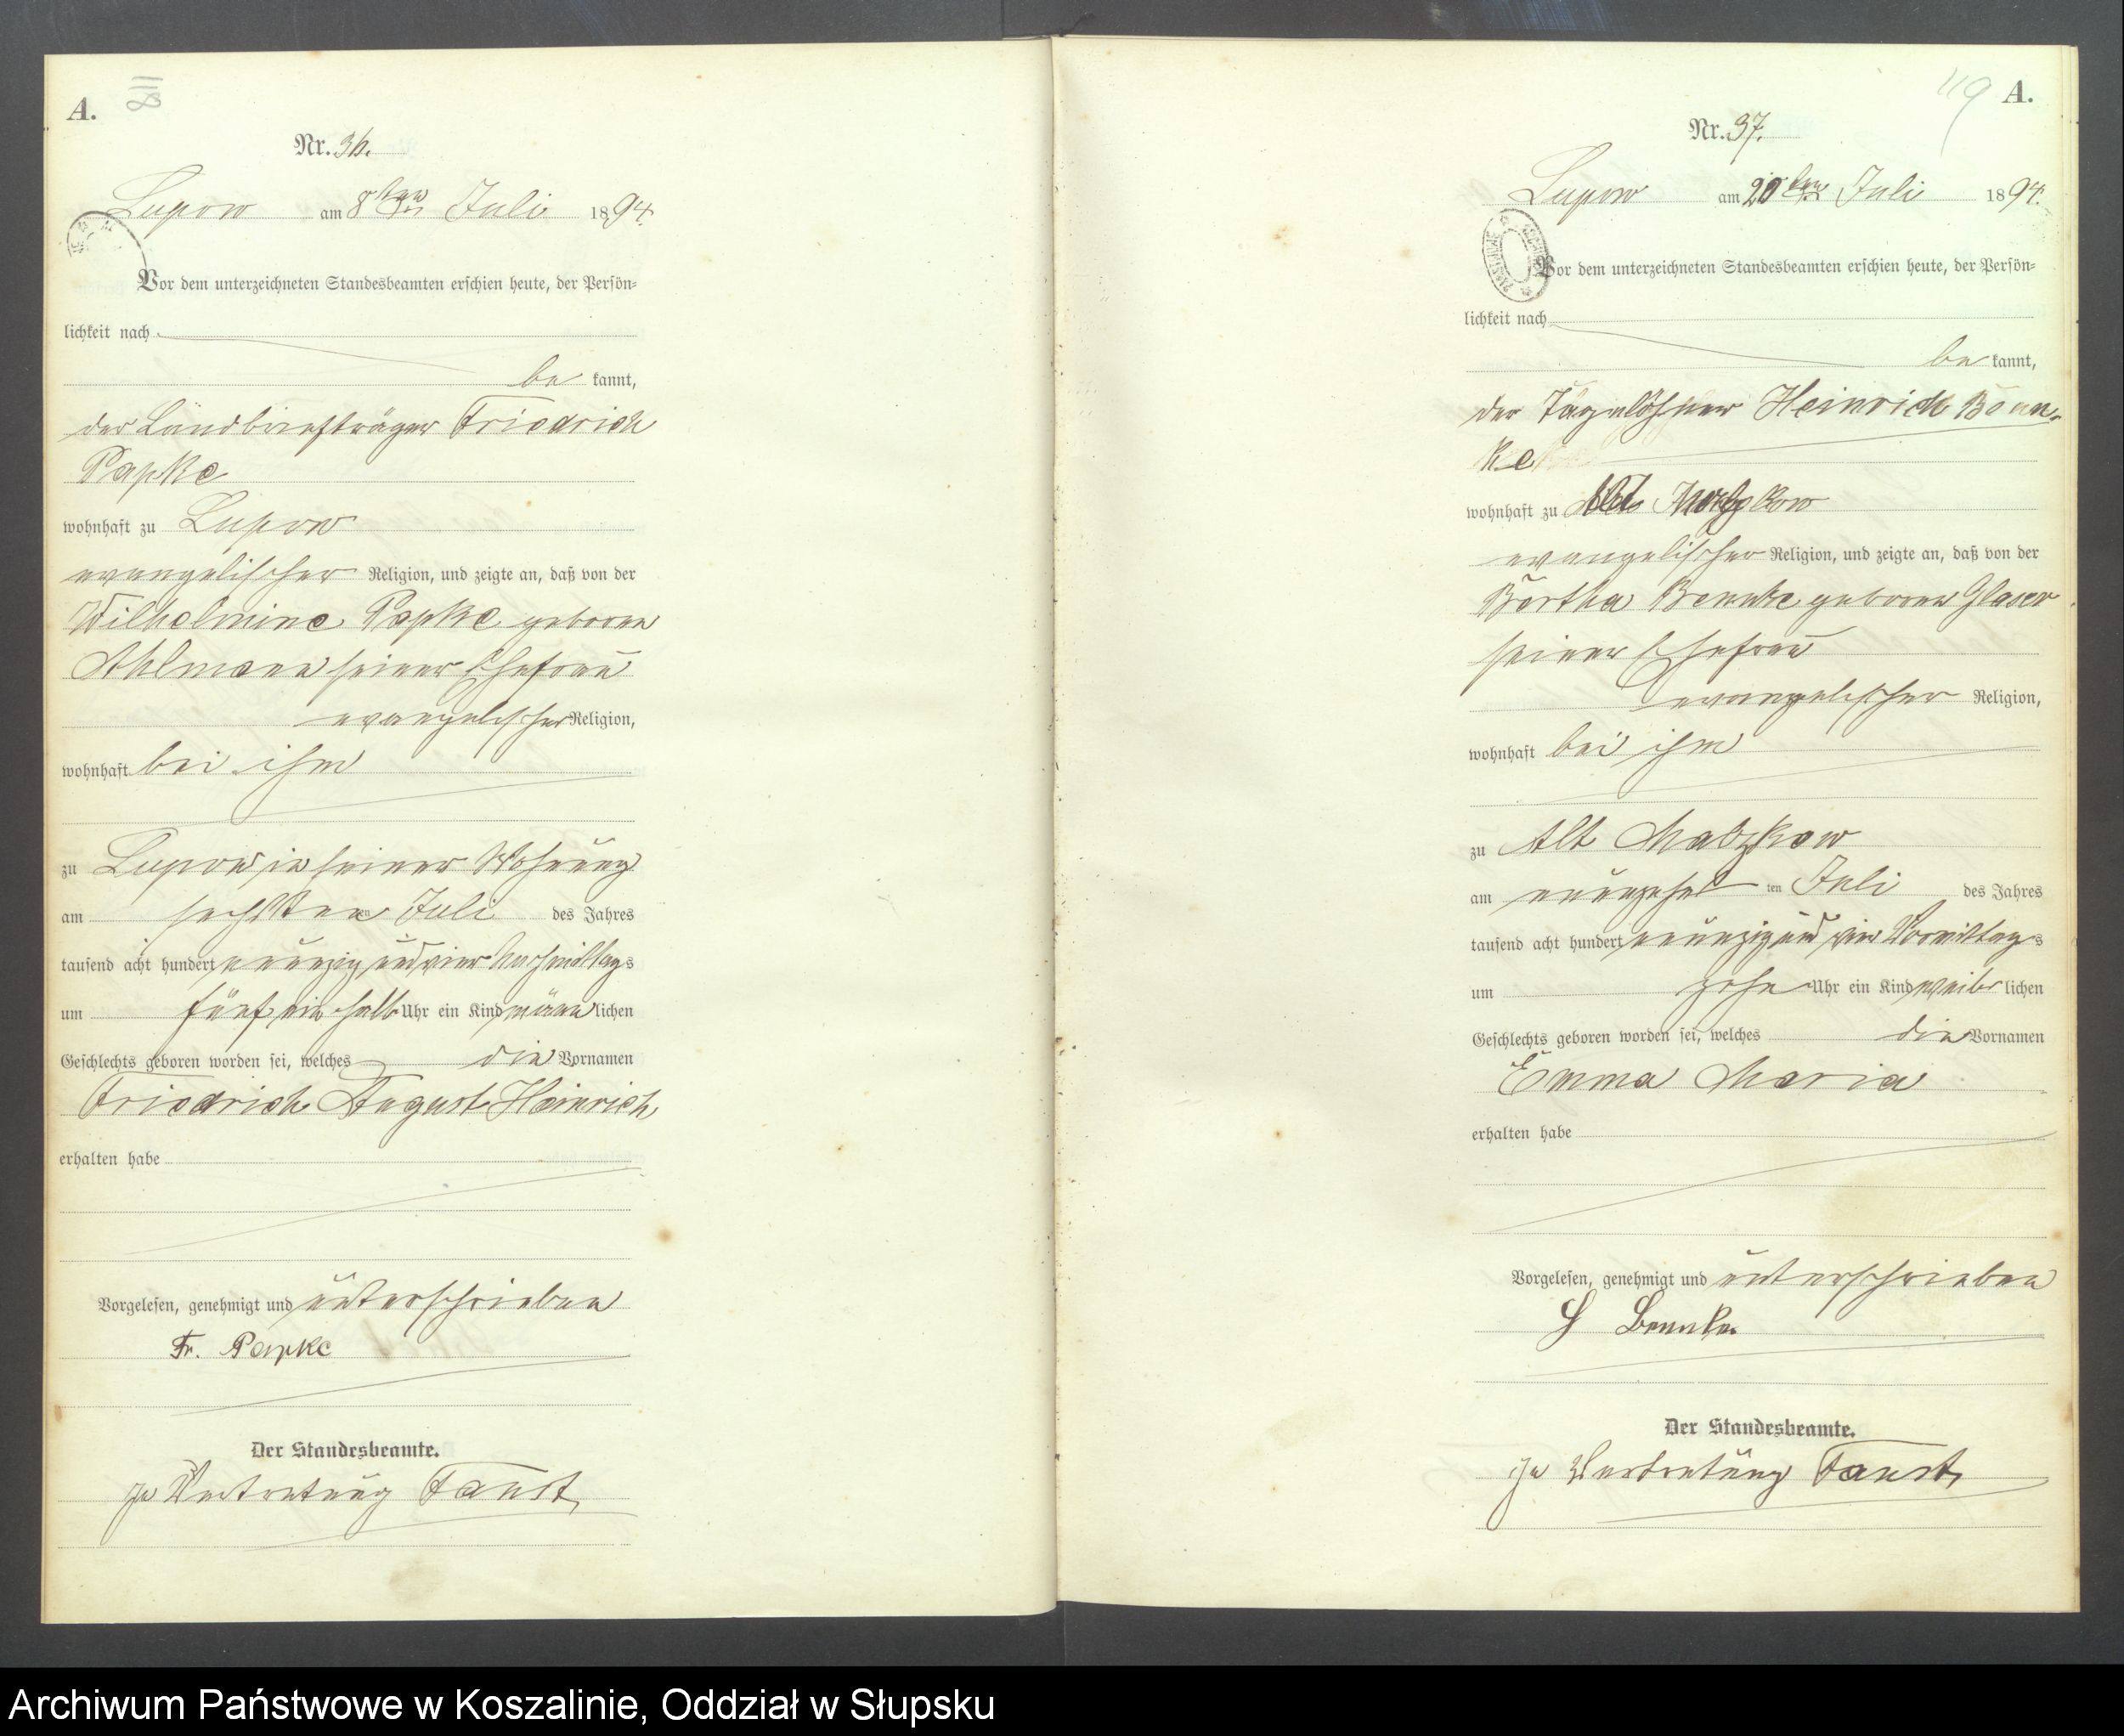 A.
Nr. 36.
Lupow am 8ten Juli 1894.
Vor dem unterzeichneten Standesbeamten erschien heute, der Persön-
lichkeit nach
be kannt,
der Landbriefträger Friedrich
Papke
wohnhaft zu Lupow
evangelischer Religion, und zeigte an, daß von der
Wilhelmine Papke geboren
Ahlmann seiner Ehefrau
evangelischer Religion,
wohnhaft bei ihm
zu Lupow in seiner Wohnung
am sechsten Juli des Jahres
tausend acht hundert neunzig und vier Nachmittags
um fünf ein halb Uhr ein Kind männlichen
Geschlechts geboren worden sei, welches die Vornamen
Friedrich August Heinrich
erhalten habe
Vorgelesen, genehmigt und unterschrieben
Fr. Papke
Der Standesbeamte.
In Vertretung Faust
119 A.
Nr. 37.
Lupow am 20ten Juli 1894.
Vor dem unterzeichneten Standesbeamten erschien heute, der Persön-
lichkeit nach
be kannt,
der Tagelöhner Heinrich Benn-
ke
wohnhaft zu Alt
evangelischer Religion, und zeigte an, daß von der
Bertha Bennke geboren Glaser
seiner Ehefrau
evangelischer Religion,
wohnhaft bei ihm
zu Alt Matzkow
am neunzehn ten Juli des Jahres
tausend acht hundert neunzig und vier Vormittags
um zehn Uhr ein Kind weiblichen
Geschlechts geboren worden sei, welches die Vornamen
Emma Maria
erhalten habe
Vorgelesen, genehmigt und unterschrieben
H Bennke
Der Standesbeamte.
In Vertretung Faust
Archiwum Państwowe w Koszalinie, Oddział w Słupsku